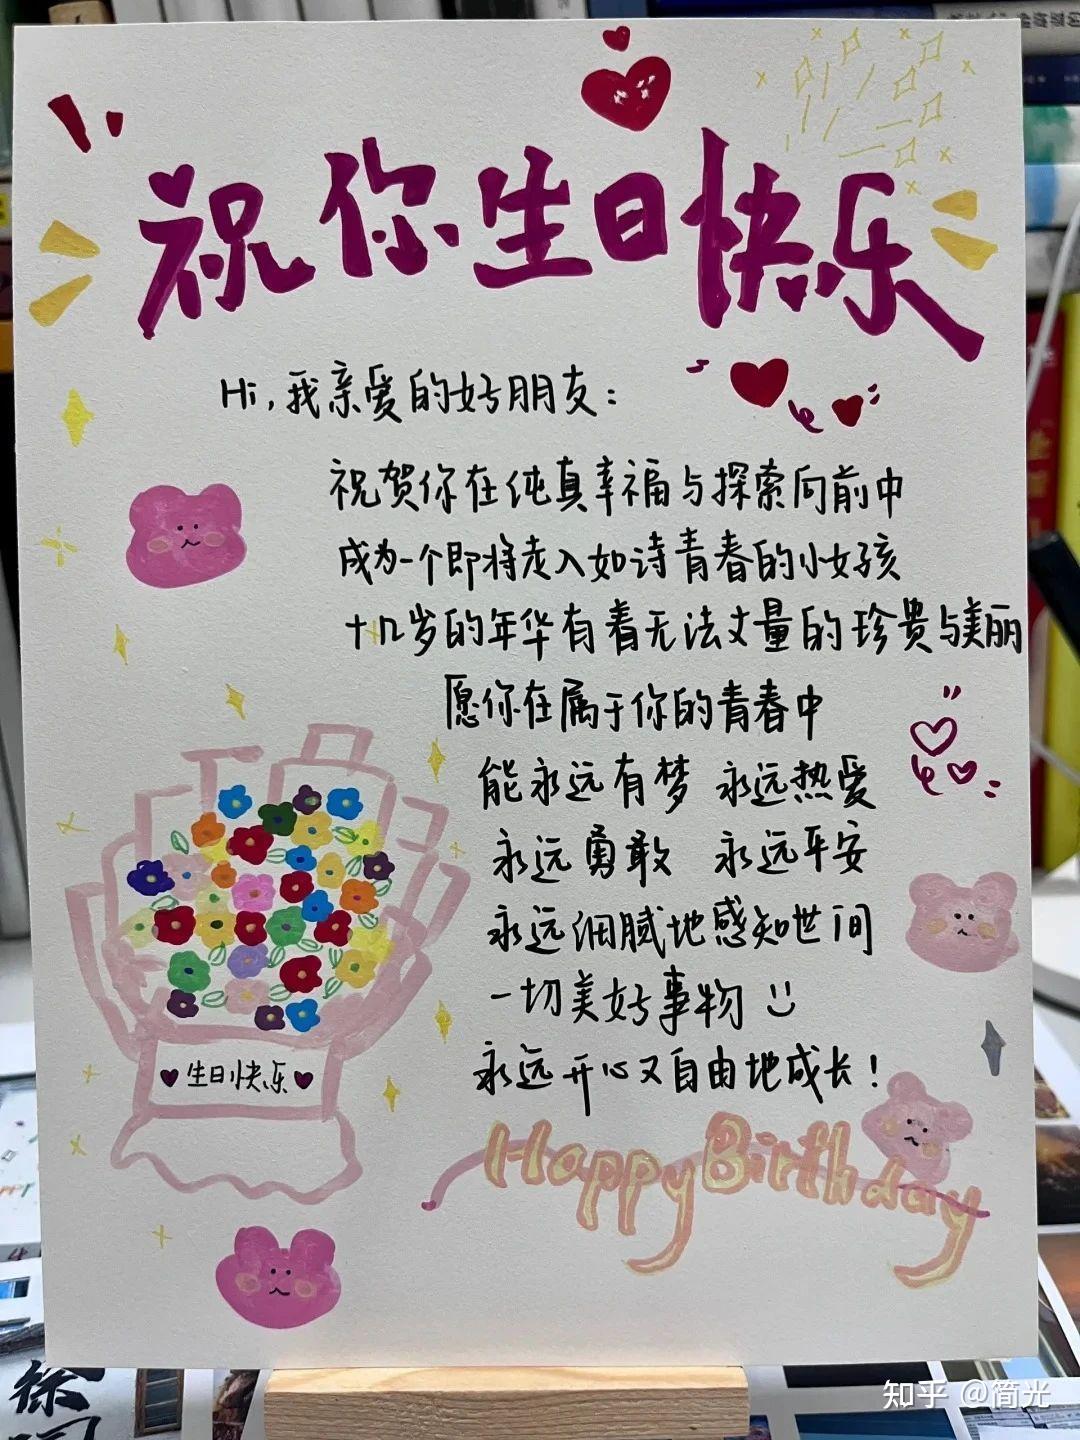 祝你生日快乐
Hi,我亲爱的好朋友:
祝贺你在纯真幸福与探索向前中
成为一个即将走入如诗青春的小女孩
十几岁的年华有着无法丈量的珍贵与美丽
愿你在属于你的青春中
能永远有梦 永远热爱
永远勇敢 永远平安
永远细腻地感知世间
一切美好事物
永远开心又自由地成长!
生日快乐
Happy Birthday
知乎 @简光